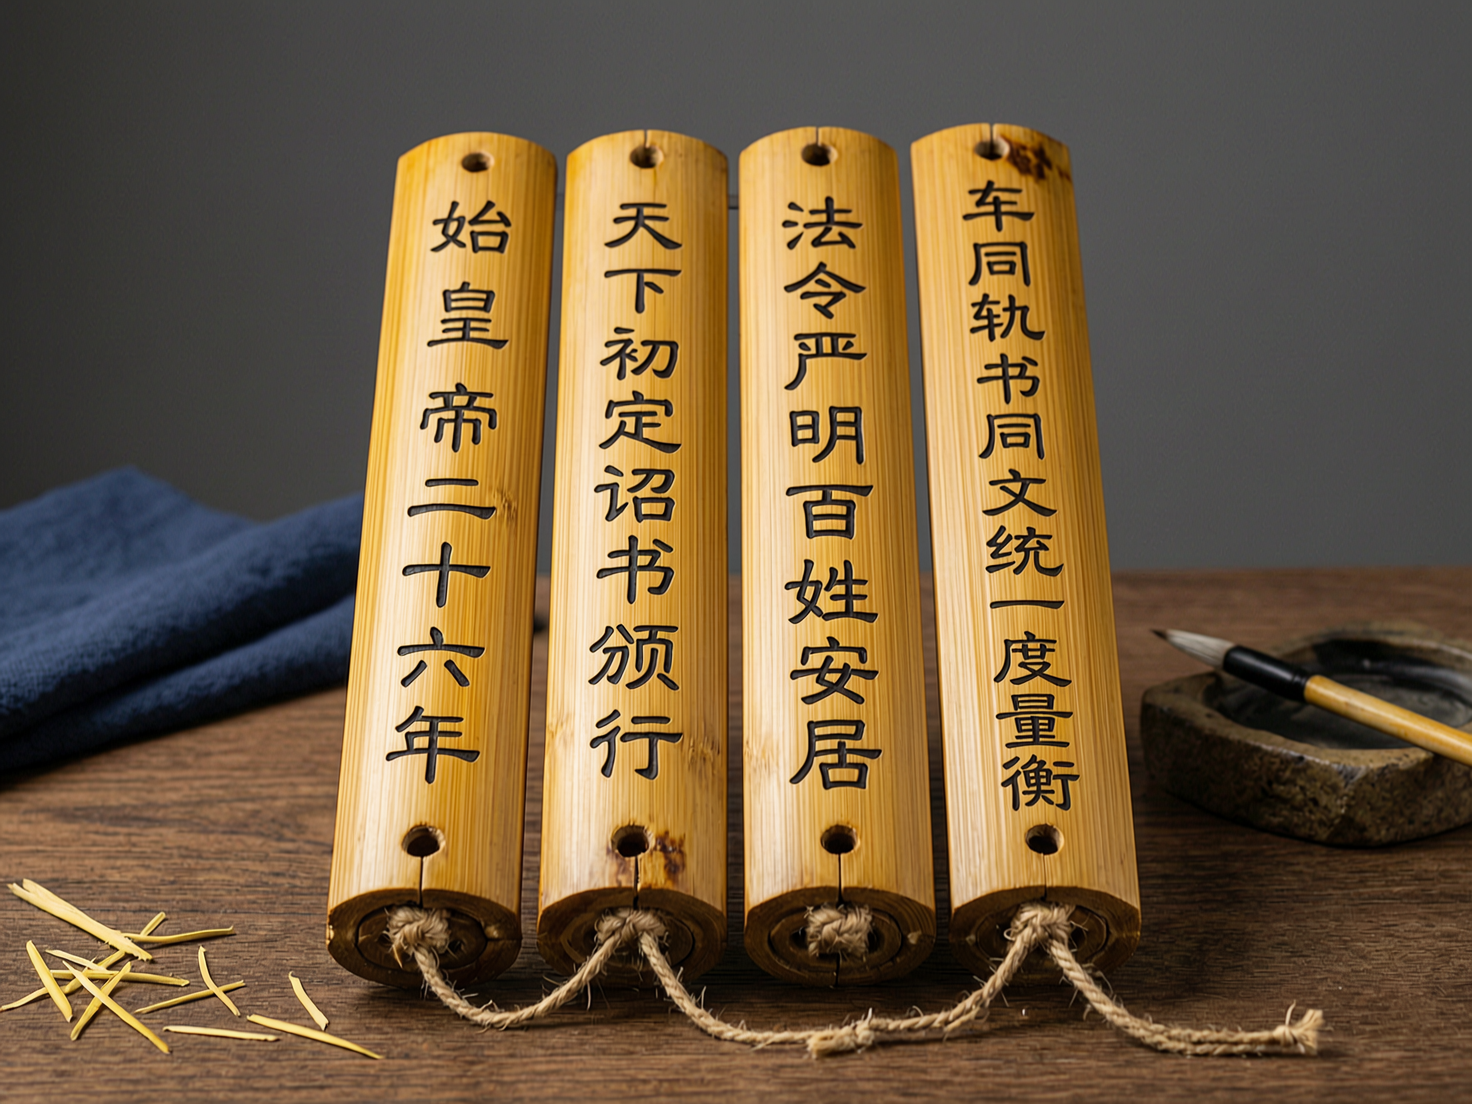 始皇帝二十六年
天下初定诏书颁行
法令严明百姓安居
车同轨书同文统一度量衡